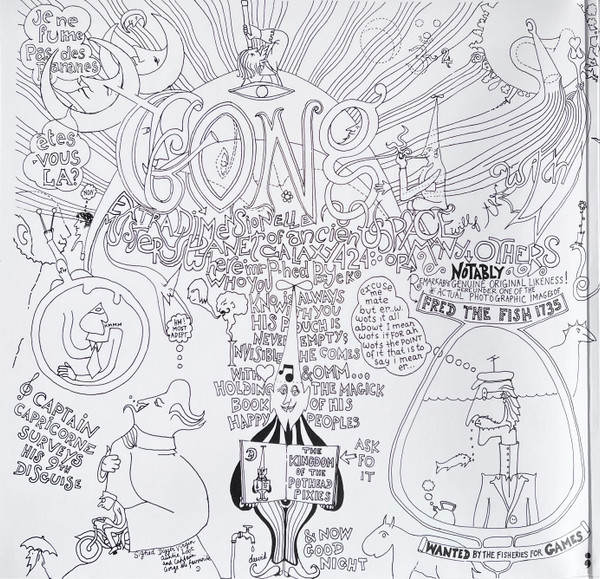 je ne
fume
Pas des
Bananes
êtes
vous
LA?
GONG
with
EXTRADIMENSIONELLE
MYSTERY PLANET of ancien
GALAXY
& MANY OTHERS
NOTABLY
REMARKABLE GENUINE ORIGINAL LIKENESS!
HEREUNDER ONE OF THE
ACTUAL PHOTOGRAPHIC IMAGE OF
FRED THE FISH 1735
WHO YOU
KNOW IS ALWAYS
WITH YOU
HIS POUCH IS
NEVER EMPTY:
INVISIBLE HE COMES
WITH & OMM...
HOLDING THE MAGICK
BOOK OF HIS
HAPPY PEOPLES
excuse
me
mate
but er..w.
wots it all
about I mean
wots it for an
wots the POINT
of it that is to
say i mean
er...
CAPTAIN
CAPRICORNE
SURVEYS
HIS 9TH
DISGUISE
THE
KINGDOM
OF THE
POTHEAD
PIXIES
ASK
FO
IT
& NOW
GOOD
NIGHT
david
WANTED BY THE FISHERIES FOR GAMES